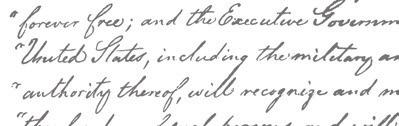 "forever free; and the Executive Governm
"United States, including the military an
"authority thereof, will recognize and m